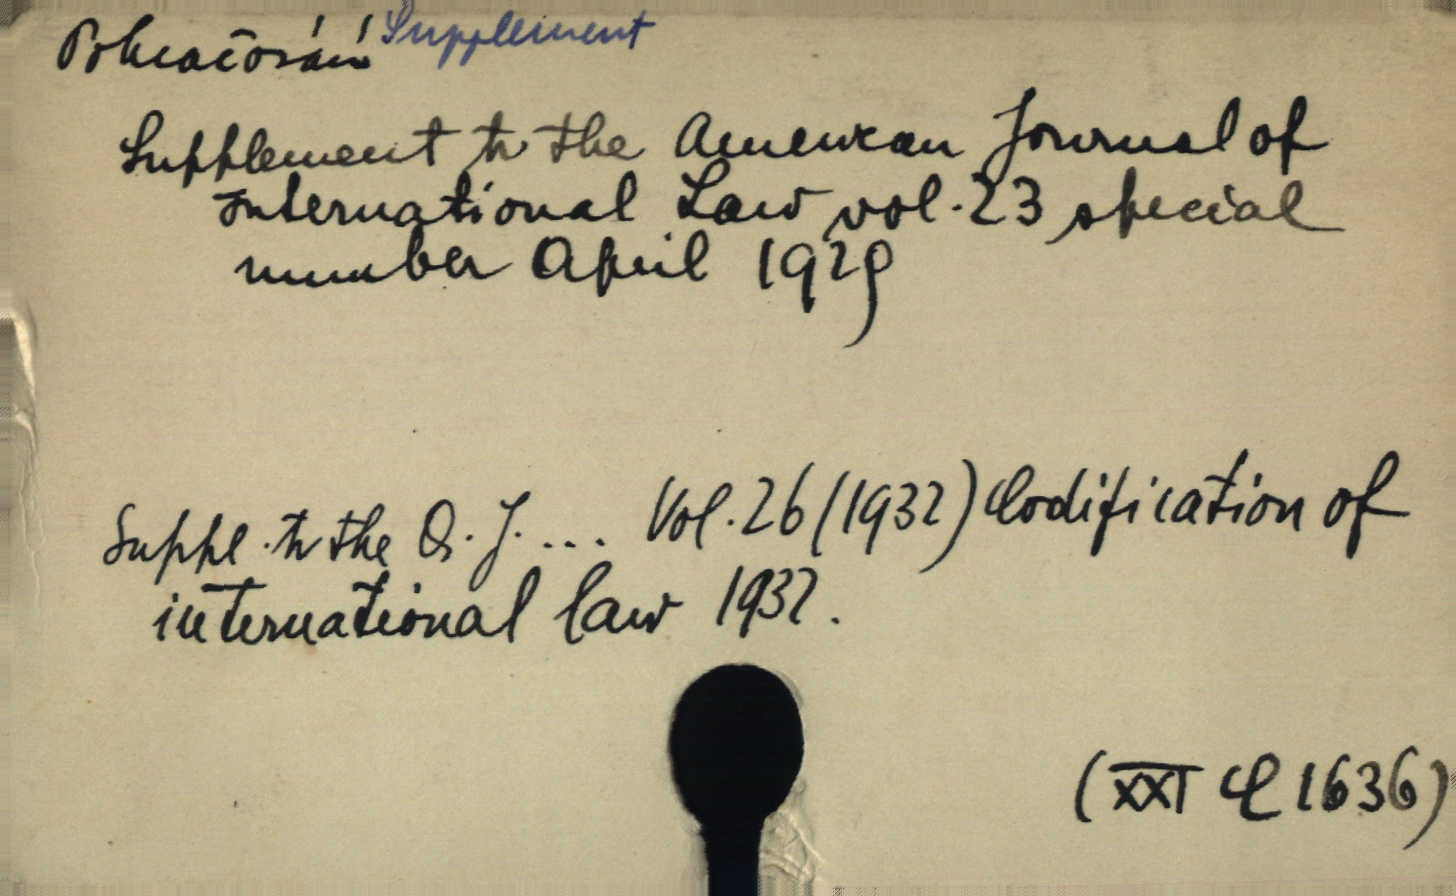 Pokračování Supplement
Supplement to the American Journal of
International Law vol. 23 special
number April 1929
Suppl. to the A. J. ... Vol. 26 (1932) Codification of
international law 1932.
(XXI C 1636)